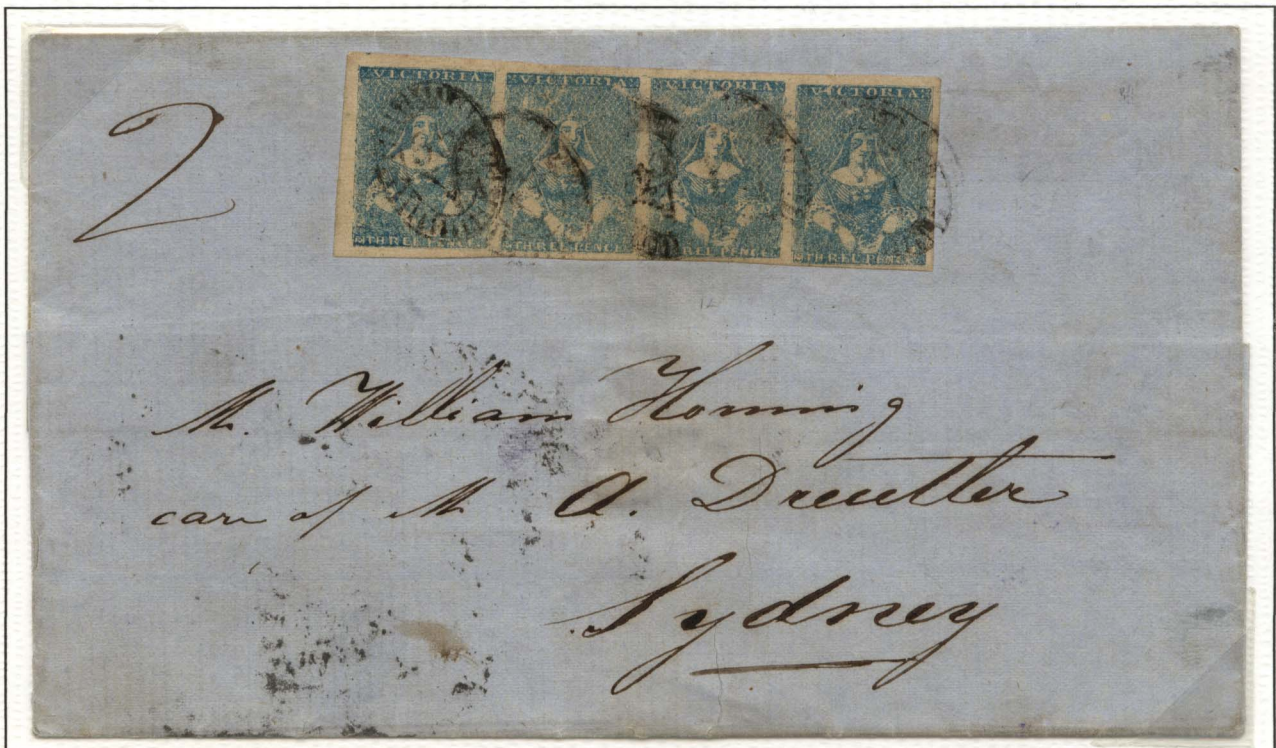 2
VICTORIA VICTORIA VICTORIA VICTORIA
THREE PENCE THREE PENCE THREE PENCE THREE PENCE
12
Mr. William Horning
care of Mr A. Dreutler
Sydney